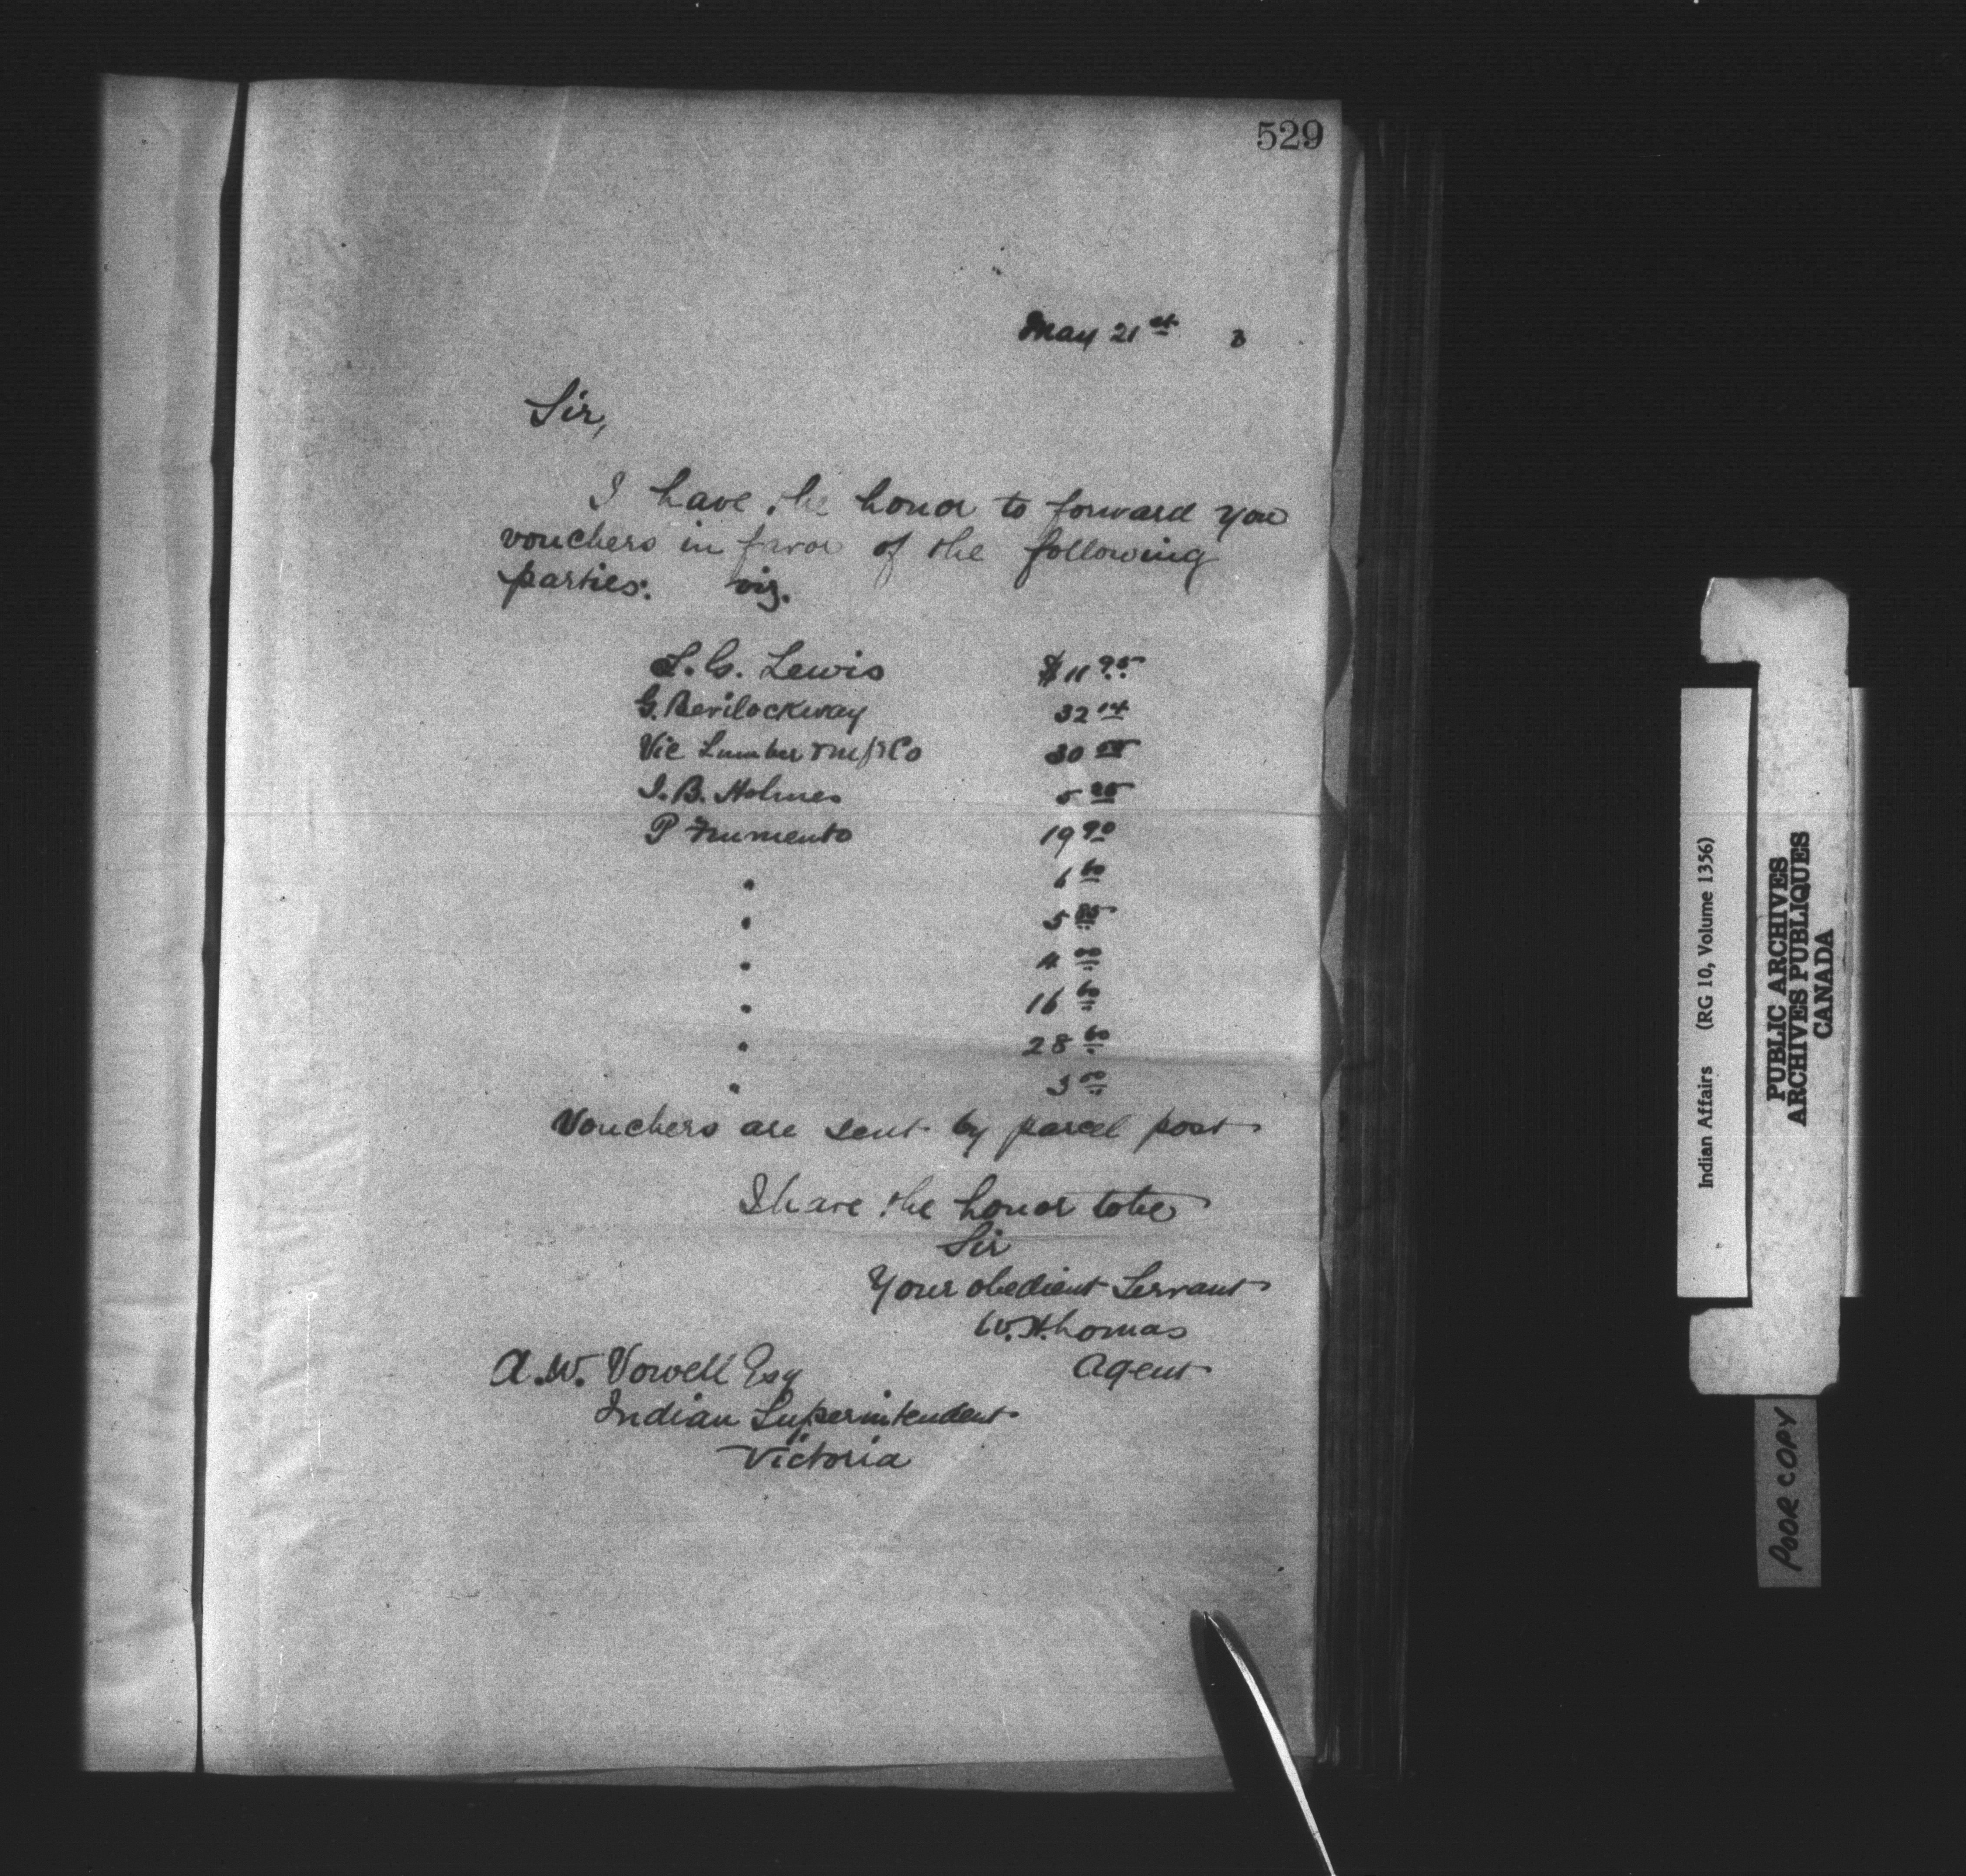 529
May 21st 3
Sir,
I have the honor to forward you
vouchers in favor of the following
parties: viz.
L. G. Lewis $11 95
G. Bevilockway 32 14
Vic Lumber & Mfg Co 30
I. B. Holmes 5
P Frumento 19 90
" 6 60
" 5 85
" 4 00
" 16 60
" 28 60
" 3 00
Vouchers are sent by parcel post
I have the honor to be
Sir
Your obedient Servant
W. H. Lomas
Agent
A. W. Vowell Esq
Indian Superintendent
Victoria
Indian Affairs (RG 10, Volume 1356)
PUBLIC ARCHIVES
ARCHIVES PUBLIQUES
CANADA
POOR COPY